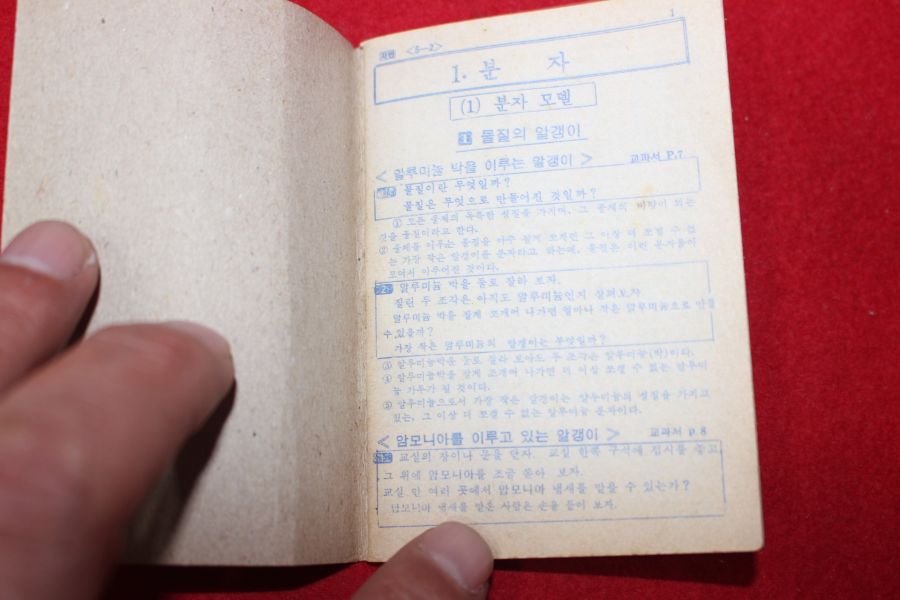 자연 <6-2>
1
1. 분 자
(1) 분자 모델
1 물질의 알갱이
< 알루미늄 박을 이루는 알갱이 > 교과서 P.7
물질이란 무엇일까?
물질은 무엇으로 만들어진 것일까?
① 모든 물체의 독특한 성질을 가지며, 그 물체의 바탕이 되는
것을 물질이라고 한다.
② 물체를 이루는 물질을 아주 잘게 쪼개면 그 이상 더 쪼갤 수 없
는 가장 작은 알갱이를 분자라고 하는데, 물질은 이런 분자들이
모여서 이루어진 것이다.
2 알루미늄 박을 둘로 잘라 보자.
잘린 두 조각은 아직도 알루미늄인지 살펴보자.
알루미늄 박을 잘게 쪼개어 나가면 얼마나 작은 알루미늄으로 만들
수 있을까?
가장 작은 알루미늄의 알갱이는 무엇일까?
③ 알루미늄박은 둘로 잘라 보아도 두 조각은 알루미늄(박)이다.
④ 알루미늄박을 잘게 쪼개어 나가면 더 이상 쪼갤 수 없는 알루미
늄 가루가 될 것이다.
⑤ 알루미늄으로서 가장 작은 알갱이는 알루미늄의 성질을 가지고
있는, 그 이상 더 쪼갤 수 없는 알루미늄 분자이다.
< 암모니아를 이루고 있는 알갱이 > 교과서 p.8
교실의 창이나 문을 닫자. 교실 한쪽 구석에 접시를 놓고
그 위에 암모니아를 조금 쏟아 보자.
교실 안 여러 곳에서 암모니아 냄새를 맡을 수 있는가?
암모니아 냄새를 맡은 사람은 손을 들어 보자.